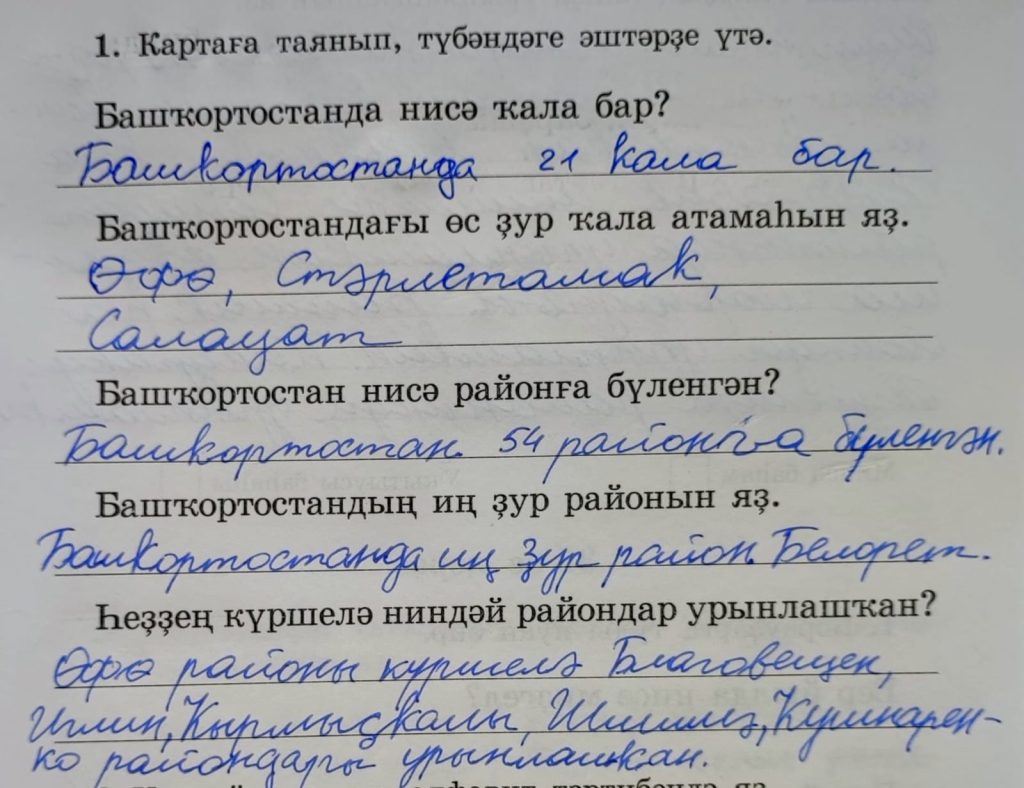 1. Картаға таянып, түбәндәге эштәрҙе үтә.
Башҡортостанда нисә ҡала бар?
Башҡортостанда 21 ҡала бар.
Башҡортостандағы өс ҙур ҡала атамаһын яҙ.
Өфө, Стәрлетамаҡ,
Салауат
Башҡортостан нисә районға бүленгән?
Башҡортостан 54 районға бүленгән.
Башҡортостандың иң ҙур районын яҙ.
Башҡортостанда иң ҙур район Белорет.
Һеҙҙең күршелә ниндәй райондар урынлашҡан?
Өфө районы күршелә Благовещен,
Иглин, Ҡырмыҫҡалы, Шишмә, Кушнарен-
ко райондары урынлашҡан.